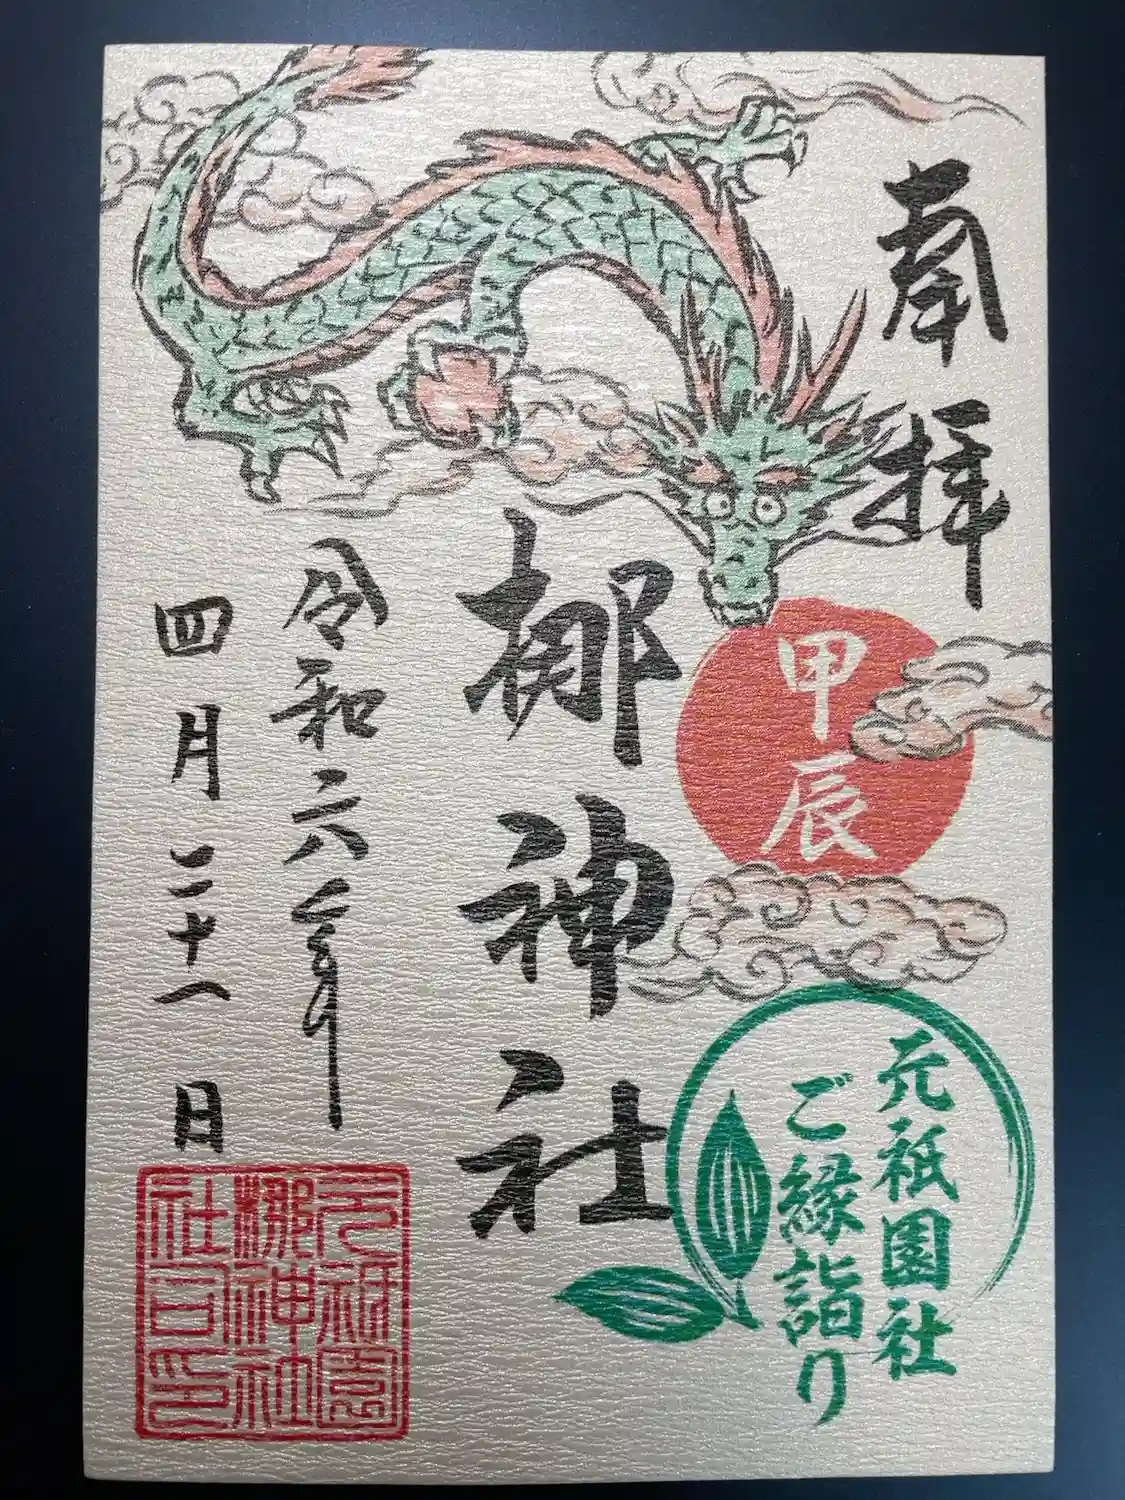 奉拝
甲辰
元祇園社
ご縁詣り
梛神社
令和六年
四月二十一日
元祇園
梛神社
社司印